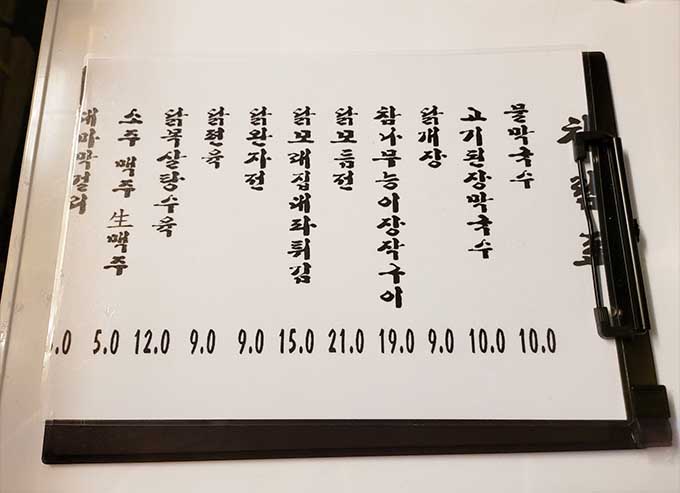 차림표
물막국수 10.0
고기된장막국수 10.0
닭개장 9.0
참나무능이장작구이 19.0
닭모듬전 21.0
닭모래집대파튀김 15.0
닭완자전 9.0
닭편육 9.0
닭목살탕수육 12.0
소주 맥주 生맥주 5.0
대마막걸리